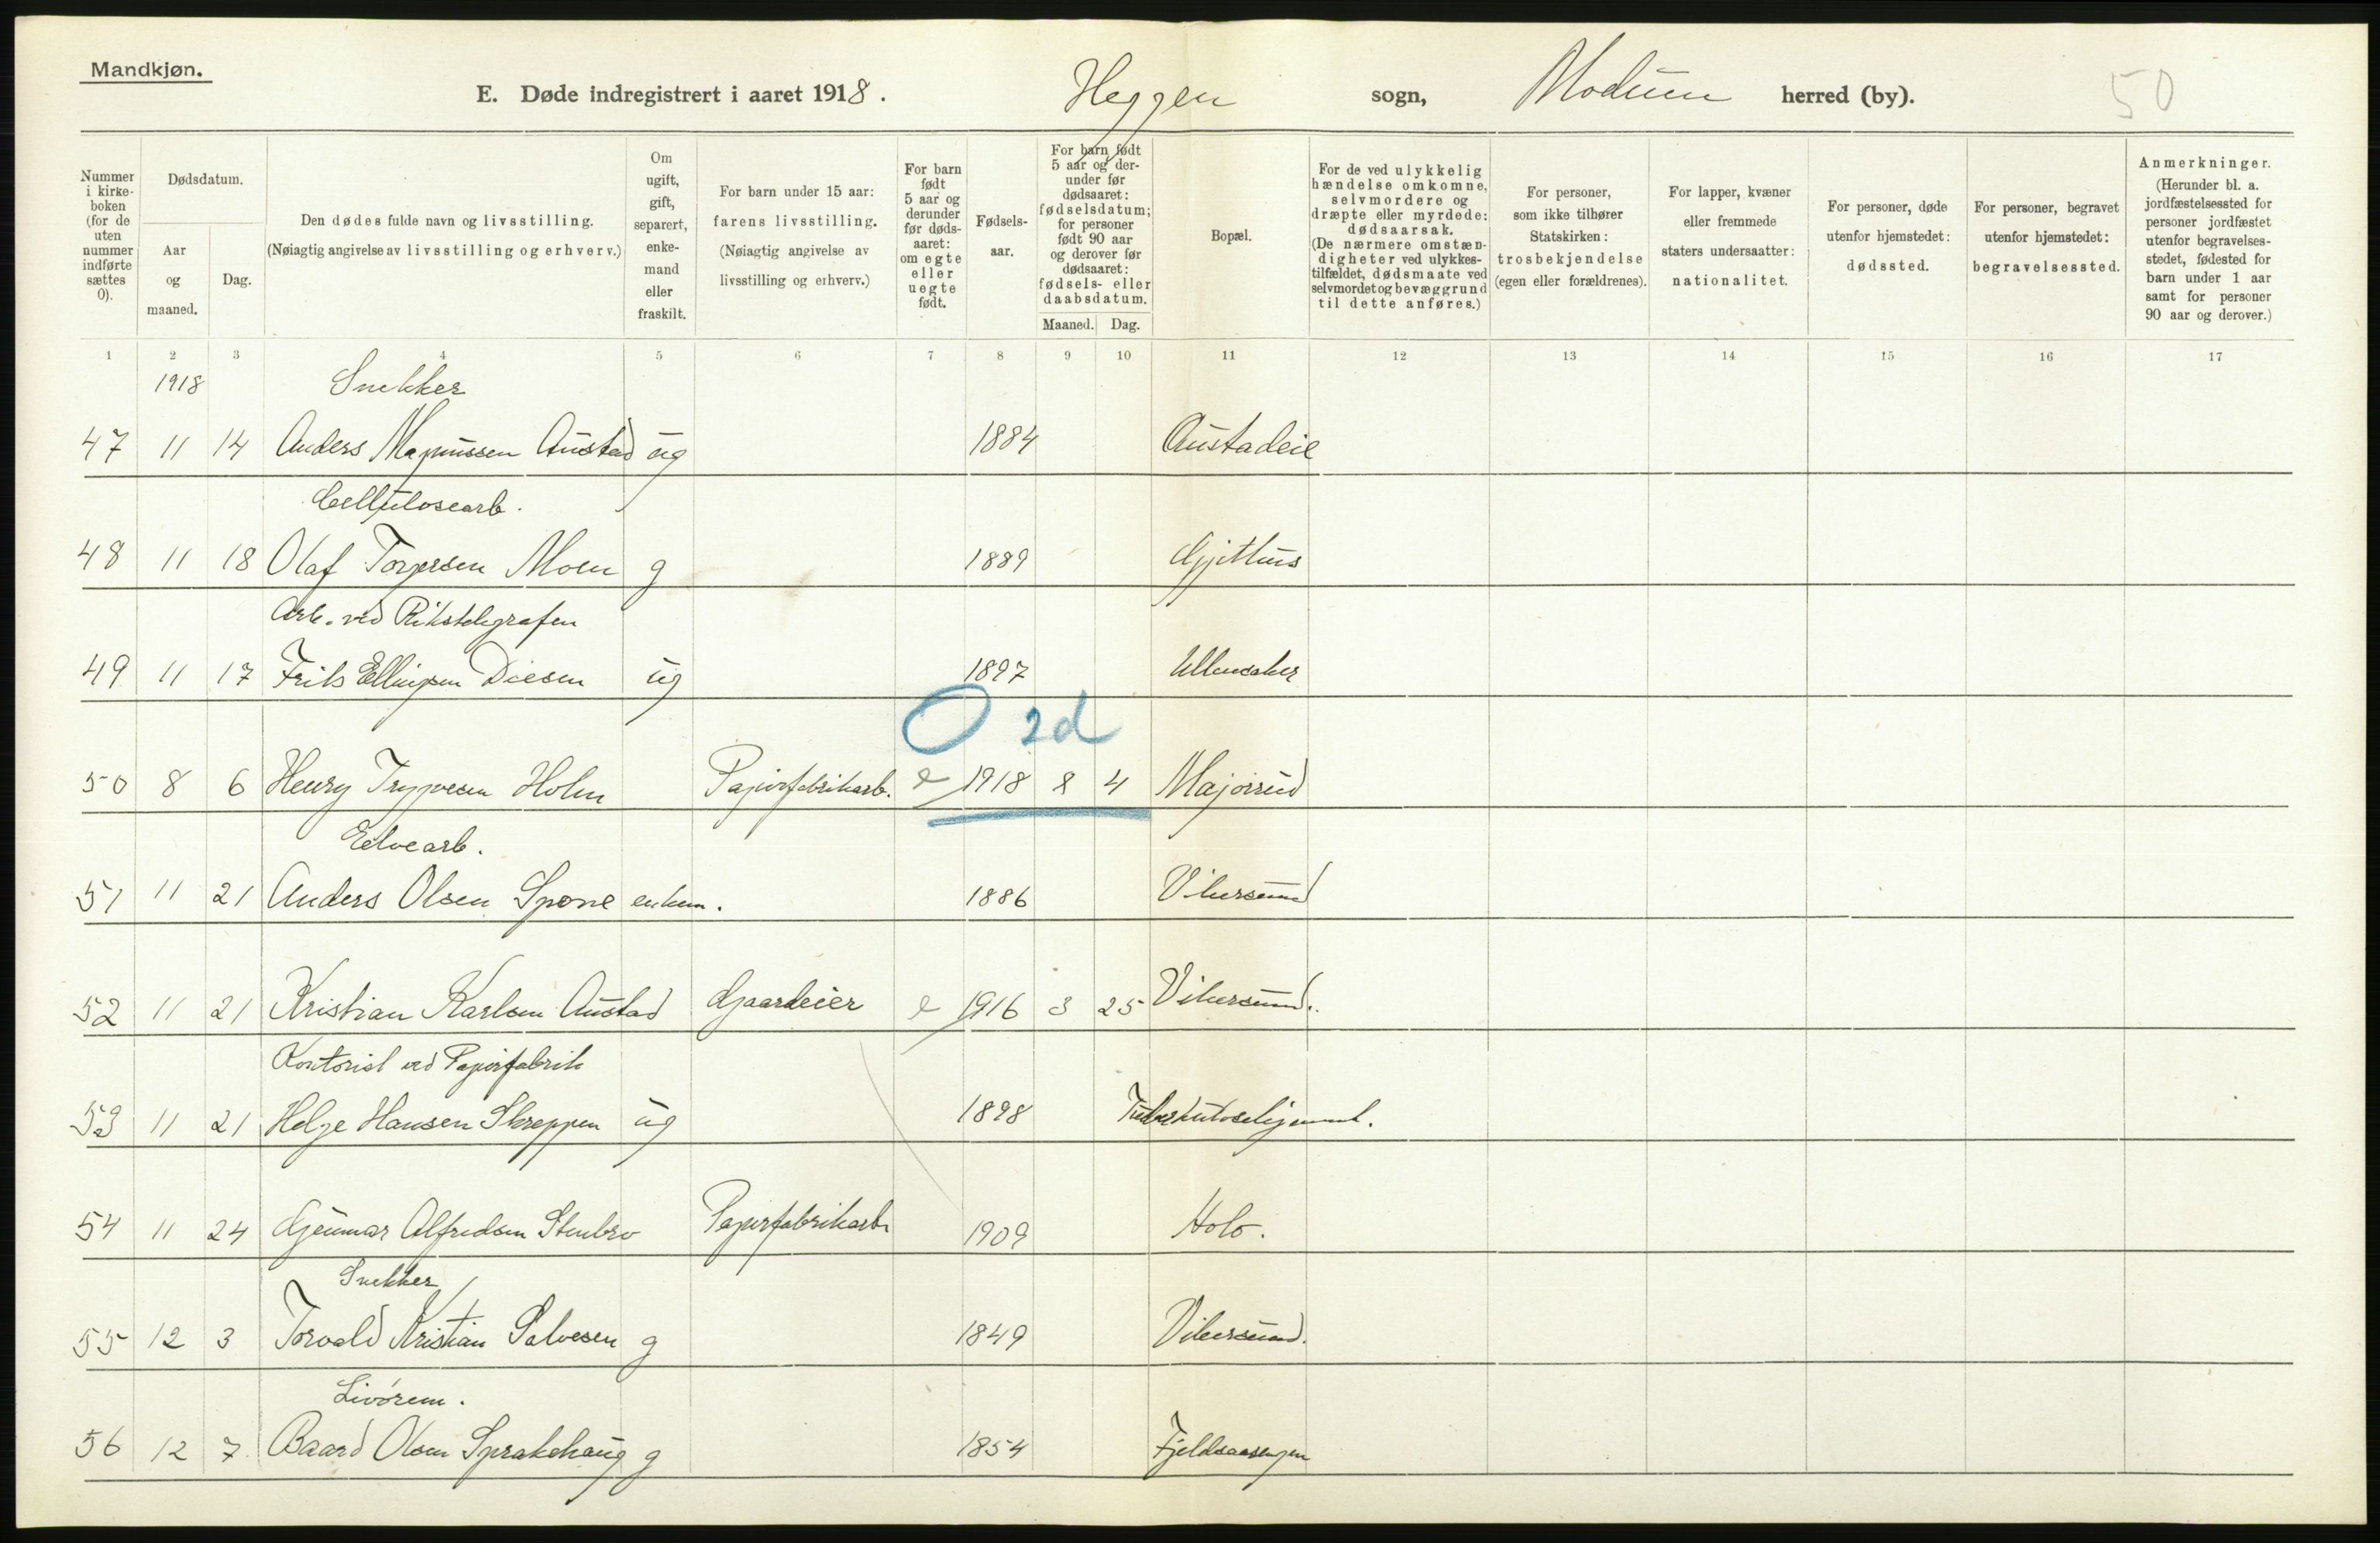 Mandkjøn.
E. Døde indregistrert i aaret 1918. Heggen sogn, Modum herred (by). 50
Nummer i kirke-boken (for de uten nummer indførte sættes 0).
Dødsdatum.
Aar og maaned.
Dag.
Den dødes fulde navn og livsstilling.
(Nøiagtig angivelse av livsstilling og erhverv.)
Om ugift, gift, separert, enke-mand eller fraskilt.
For barn under 15 aar: farens livsstilling. (Nøiagtig angivelse av livsstilling og erhverv.)
For barn født 5 aar og derunder før døds-aaret: om egte eller uegte født.
Fødsels-aar.
For barn født 5 aar og der-under før dødsaaret: fødselsdatum; for personer født 90 aar og derover før dødsaaret: fødsels- eller daabsdatum.
Maaned. Dag.
Bopæl.
For de ved ulykkelig hændelse omkomne, selvmordere og dræpte eller myrdede: dødsaarsak. (De nærmere omstæn-digheter ved ulykkes-tilfældet, dødsmaate ved selvmordet og bevæggrund til dette anføres.)
For personer, som ikke tilhører Statskirken: trosbekjendelse (egen eller forældrenes).
For lapper, kvæner eller fremmede staters undersaatter: nationalitet.
For personer, døde utenfor hjemstedet: dødssted.
For personer, begravet utenfor hjemstedet: begravelsessted.
Anmerkninger. (Herunder bl. a. jordfæstelsessted for personer jordfæstet utenfor begravelses-stedet, fødested for barn under 1 aar samt for personer 90 aar og derover.)
1 2 3 4 5 6 7 8 9 10 11 12 13 14 15 16 17
1918 Snekker
47 11 14 Anders Magnussen Austad ug 1884 Austadeie
Cellulosearb.
48 11 18 Olaf Torgersen Moen g 1889 Gjithus
Arb. ved Rikstelegrafen
49 11 17 Frits Ellingsen Diesen ug 1897 Ullensaker
O 2d
50 8 6 Henry Trygvesen Holm Papirfabrikarb. e 1918 8 4 Majorsud
Elvearb.
51 11 21 Anders Olsen Spone enkem. 1886 Vikersund
52 11 21 Kristian Karlsen Austad Gaardeier e 1916 3 25 Vikersund.
Kontorist ved Papirfabrik
53 11 21 Helge Hansen Skreppen ug 1898 Tuberkulosehjemmet.
54 11 24 Gunnar Alfredsen Stenbro Papirfabrikarb 1909 Holo.
Snekker
55 12 3 Torvald Kristian Salvesen g 1849 Vikersund.
Livørem.
56 12 7 Baard Olsen Sprakehaug g 1854 Fjeldsaasengen